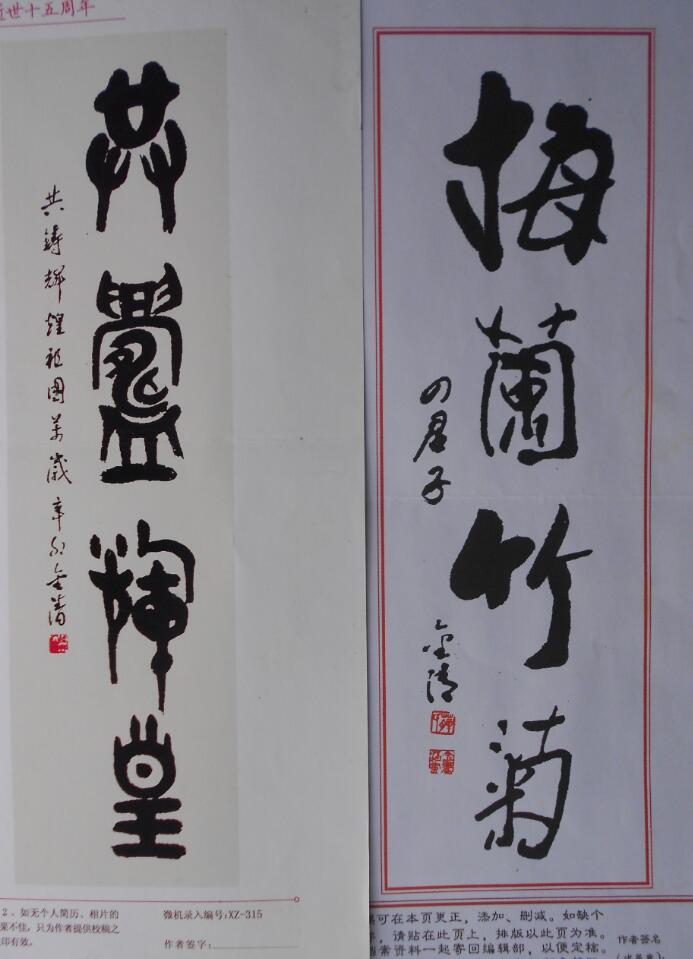 世十五周年
共鑄輝煌
共鑄輝煌祖国萬歲辛卯金清
2、如无个人简历、相片的
果不佳，只为作者提供校稿之
印有效。
微机录入编号:XZ-315
作者签字：
梅蘭竹菊
四君子
金清
可在本页更正，添加、删减。如缺个
请贴在此页上，排版以此页为准。
资料一起寄回编辑部，以便定稿。
作者签名